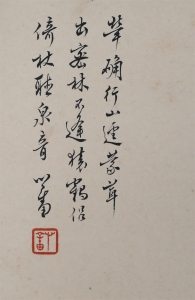 犖确行山逕蒙茸
出密林不逢猿鶴侶
倚杖聽泉音心畬